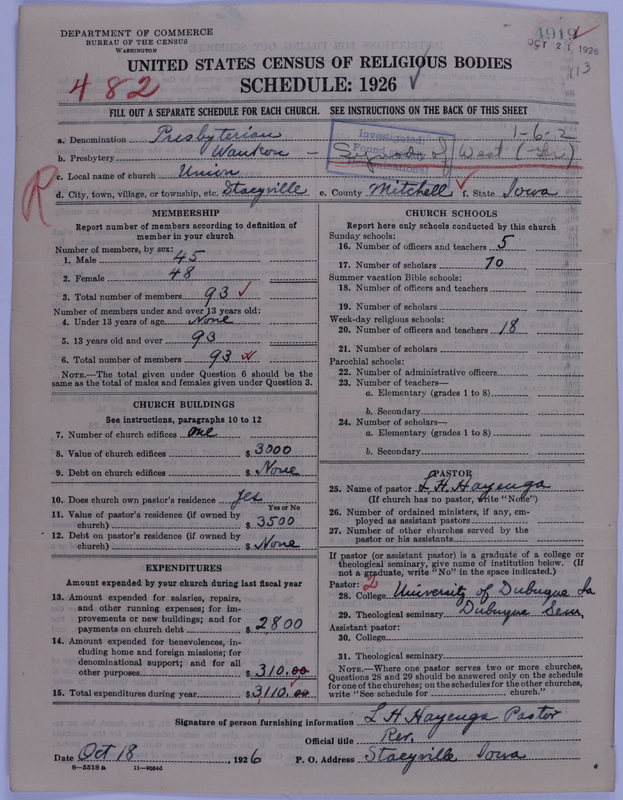 DEPARTMENT OF COMMERCE
BUREAU OF THE CENSUS
WASHINGTON
4919
OCT 21 1926
113
UNITED STATES CENSUS OF RELIGIOUS BODIES
SCHEDULE: 1926
482
FILL OUT A SEPARATE SCHEDULE FOR EACH CHURCH. SEE INSTRUCTIONS ON THE BACK OF THIS SHEET
1-6-2
a. Denomination Presbyterian
b. Presbytery Waukon - Synod of West (
Investigated
c. Local name of church Union
R
d. City, town, village, or township, etc. Stacyville e. County Mitchell f. State Iowa
MEMBERSHIP
Report number of members according to definition of member in your church
Number of members, by sex:
1. Male 45
2. Female 48
3. Total number of members 93
Number of members under and over 13 years old:
4. Under 13 years of age None
5. 13 years old and over 93
6. Total number of members 93
NOTE.—The total given under Question 6 should be the same as the total of males and females given under Question 3.
CHURCH BUILDINGS
See instructions, paragraphs 10 to 12
7. Number of church edifices one
8. Value of church edifices $ 3000
9. Debt on church edifices $ None
10. Does church own pastor's residence Yes
Yes or No
11. Value of pastor's residence (if owned by
church) $ 3500
12. Debt on pastor's residence (if owned by
church) $ None
EXPENDITURES
Amount expended by your church during last fiscal year
13. Amount expended for salaries, repairs,
and other running expenses; for im-
provements or new buildings; and for
payments on church debt $ 2800
14. Amount expended for benevolences, in-
cluding home and foreign missions; for
denominational support; and for all
other purposes $ 310.00
15. Total expenditures during year $ 3110.00
CHURCH SCHOOLS
Report here only schools conducted by this church
Sunday schools:
16. Number of officers and teachers 5
17. Number of scholars 70
Summer vacation Bible schools:
18. Number of officers and teachers
19. Number of scholars
Week-day religious schools:
20. Number of officers and teachers 18
21. Number of scholars
Parochial schools:
22. Number of administrative officers
23. Number of teachers—
a. Elementary (grades 1 to 8)
b. Secondary
24. Number of scholars—
a. Elementary (grades 1 to 8)
b. Secondary
PASTOR
25. Name of pastor L. H. Hayenga
(If church has no pastor, write "None")
26. Number of ordained ministers, if any, em-
ployed as assistant pastors
27. Number of other churches served by the
pastor or his assistants
If pastor (or assistant pastor) is a graduate of a college or theological seminary, give name of institution below. (If not a graduate, write "No" in the space indicated.)
Pastor: 2
28. College University of Dubuque Ia
29. Theological seminary Dubuque Sem.
Assistant pastor:
30. College
31. Theological seminary
NOTE.—Where one pastor serves two or more churches, Questions 28 and 29 should be answered only on the schedule for one of the churches; on the schedules for the other churches, write "See schedule for church."
Signature of person furnishing information L H Hayenga Pastor
Official title Rev.
Date Oct 18, 1926 P. O. Address Stacyville Iowa
8—5518 a 11—9054d